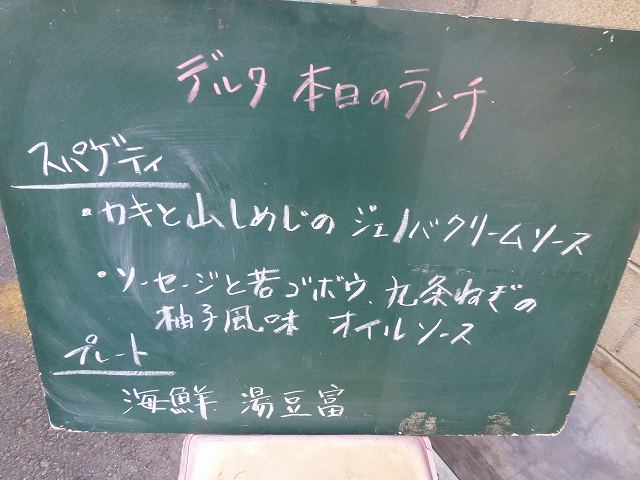 デルタ 本日のランチ
スパゲティ
・カキと山しめじの ジェノバクリームソース
・ソーセージと若ゴボウ、九条ねぎの
柚子風味 オイルソース
プレート
海鮮 湯豆富